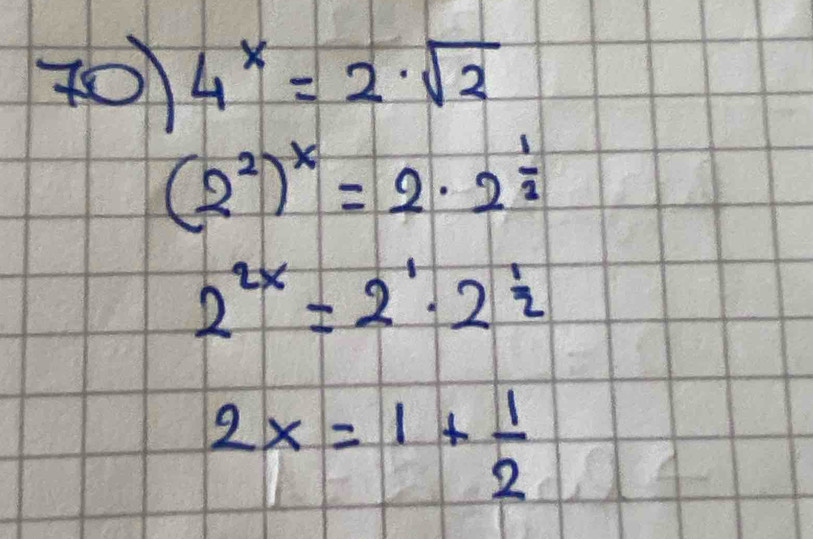 70) 4^x = 2 · √2
(2^2)^x = 2 · 2^(1/2)
2^(2x) = 2^1 · 2^(1/2)
2x = 1 + 1/2